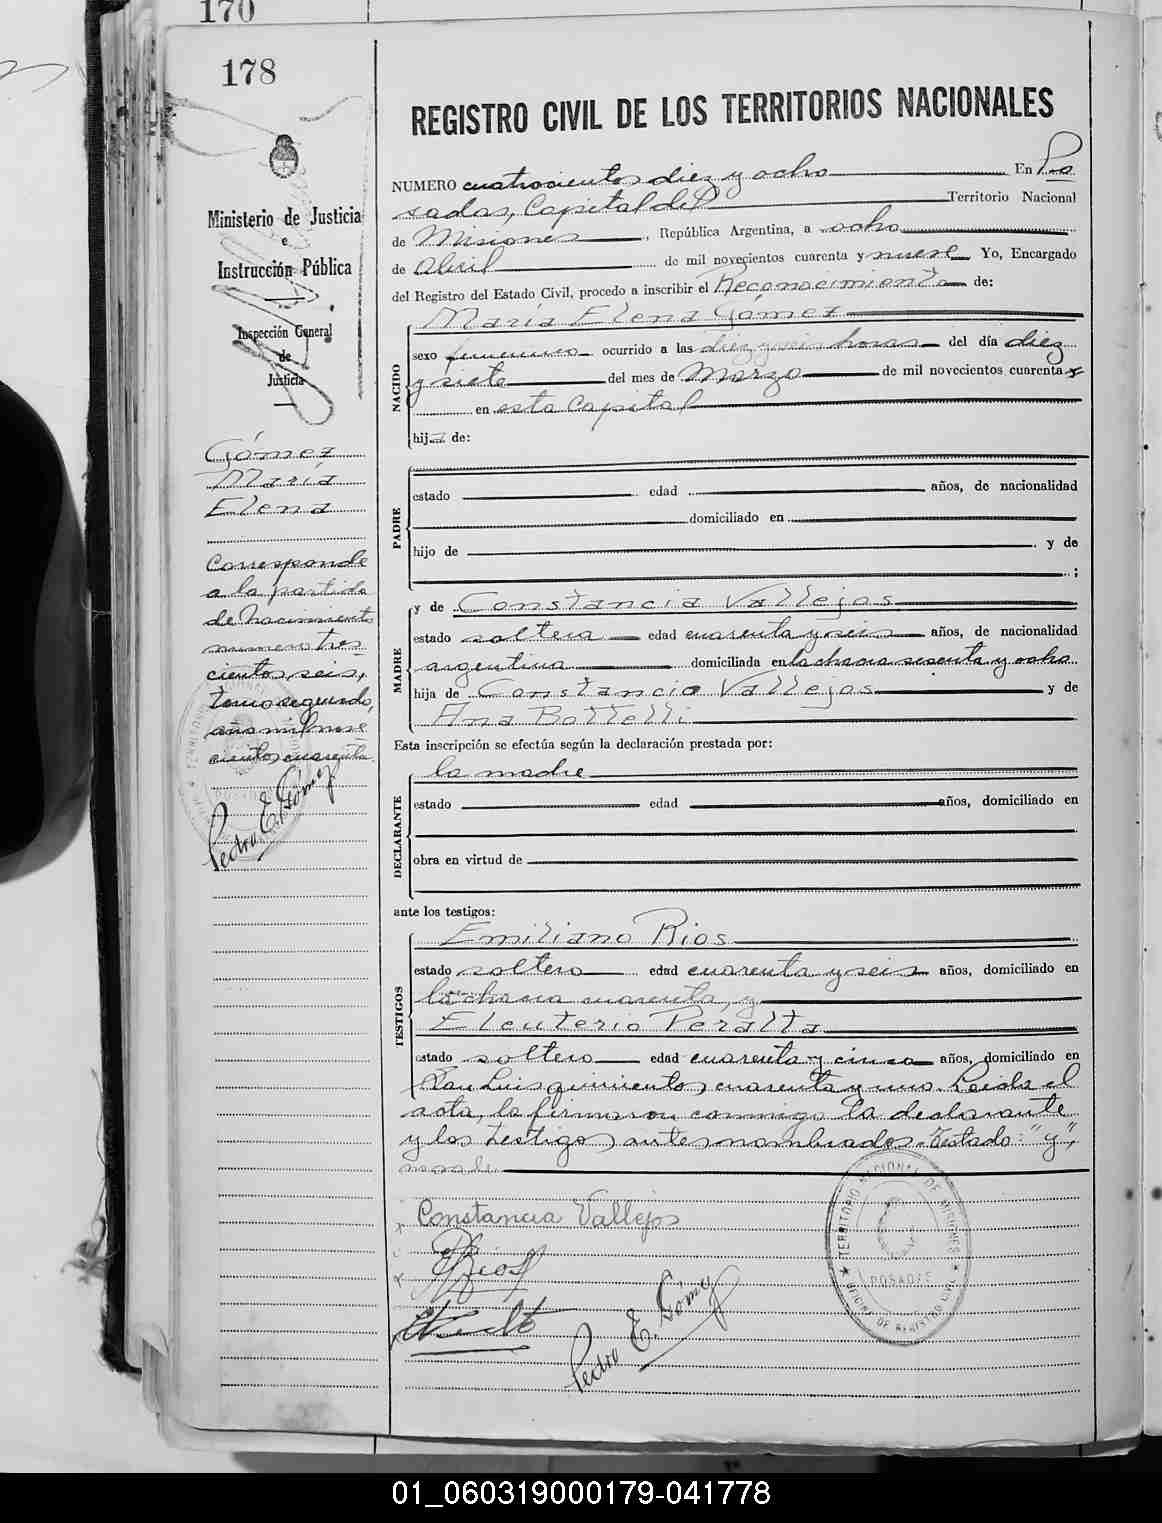 170
178
Ministerio de Justicia
e
Instrucción Pública
Inspección General
de
Justicia
Gómez
María
Elena
Corresponde
a la partida
de Nacimiento
numero tres-
cientos seis,
tomo segundo,
año mil nove
cientos cuarenta
Pedro E. Gómez
REGISTRO CIVIL DE LOS TERRITORIOS NACIONALES
NUMERO cuatrocientos diez y ocho En Po
sadas, Capital del Territorio Nacional
de Misiones, República Argentina, a ocho
de Abril de mil novecientos cuarenta y nueve Yo, Encargado
del Registro del Estado Civil, procedo a inscribir el Reconocimiento de:
María Elena Gómez
NACIDO
sexo femenino ocurrido a las diez y seis horas del día diez
y siete del mes de Marzo de mil novecientos cuarenta y
en esta Capital
hija de:
PADRE
estado edad años, de nacionalidad
domiciliado en
hijo de y de
;
MADRE
y de Constancia Vallejos
estado soltera edad cuarenta y seis años, de nacionalidad
argentina domiciliada en la chacra sesenta y ocho
hija de Constancio Vallejos y de
Ana Bottelli
Esta inscripción se efectúa según la declaración prestada por:
la madre
DECLARANTE
estado edad años, domiciliado en
obra en virtud de
ante los testigos:
TESTIGOS
Emiliano Rios
estado soltero edad cuarenta y seis años, domiciliado en
la chacra cuarenta, y
Eleuterio Peralta
estado soltero edad cuarenta y cinco años, domiciliado en
San Luis quinientos cuarenta y uno. Leida el
acta, la firmaron conmigo la declarante
y los testigos antes nombrados. Testado: "y",
Constancia Vallejos
ERios
Pedro E. Gómez
TERRITORIO NACIONAL DE MISIONES
POSADAS
OFICINA DE REGISTRO CIVIL
01_060319000179-041778